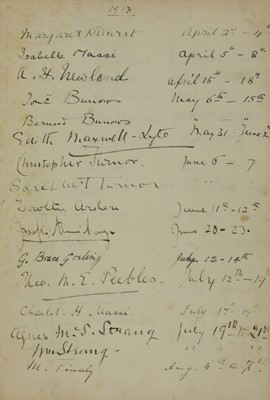 1913
Margaret Durst April 2nd - 4th
Isabelle Massé April 5th - 8th
A. H. Newland April 15th - 18th
José Burrows May 6th - 15th
Bernard Burrows
Edith Maxwell-Lyte May 31 - June 2nd
Christopher Turnor. June 6 - 7
Sarah Turnor " "
Dorothea Arden June 11th - 12th
Joseph Armitage June 20 - 23.
G. Brace Gosling July 12 - 14th
Theo. M. E. Peebles. July 12th - 19
Charles H. Massé July 17 - 19
Agnes McS. Strang July 19th to 21st
Wm Strang - " " "
M. Finaly Aug. 4th to 7th